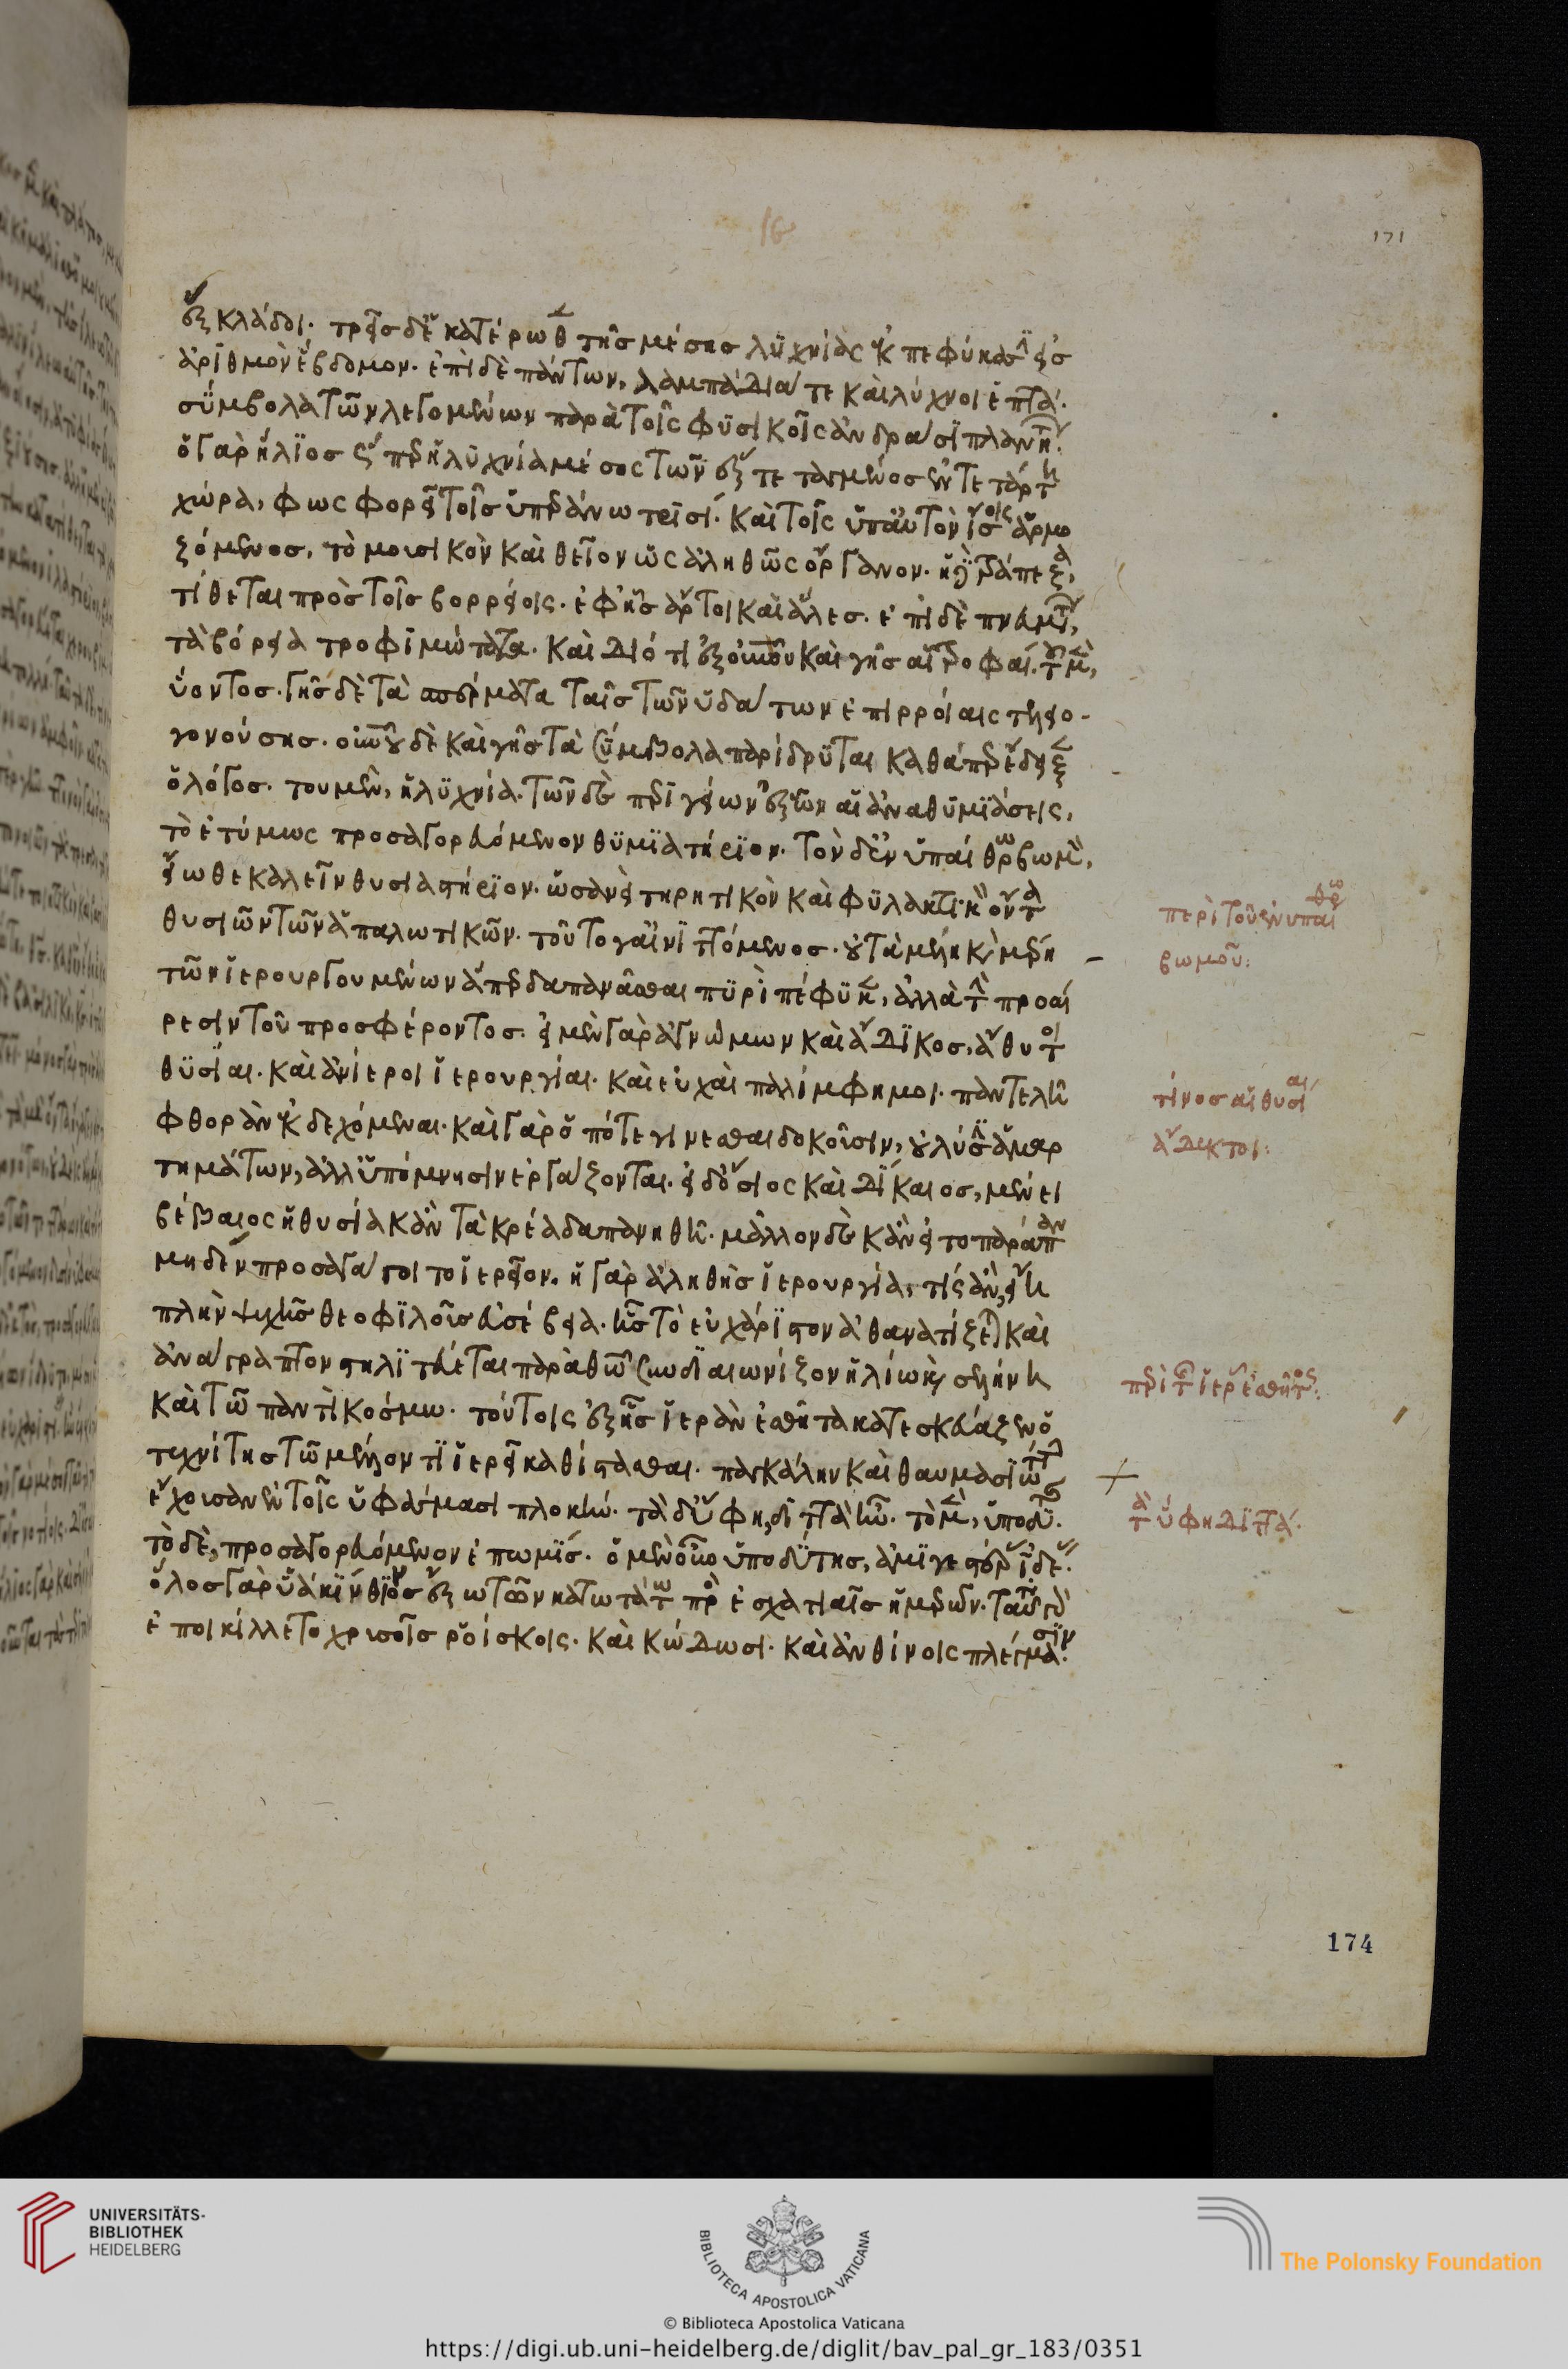 171
ἓξ κλάδοι. τρεῖς δ' ἑκατέρωθεν τῆς μέσης λυχνίας ἐκπεφύκασιν εἰς
ἀριθμὸν ἕβδομον. ἐπὶ δὲ πάντων, λαμπάδιά τε καὶ λύχνοι ἑπτά.
σύμβολα τῶν λεγομένων παρὰ τοῖς φυσικοῖς ἀνδράσι πλανητῶν.
ὁ γὰρ ἥλιος ὥσπερ ἡ λυχνία μέσος τῶν ἓξ τεταγμένος ἐν τετάρτῃ
χώρᾳ, φωσφορεῖ τοῖς ὑπεράνω τρισί. καὶ τοῖς ὑπ' αὐτὸν ἴσοις ἁρμο
ζόμενος, τὸ μουσικὸν καὶ θεῖον ὡς ἀληθῶς ὄργανον. ἡ δὲ τράπεζα,
τίθεται πρὸς τοῖς βορείοις. ἐφ' ἧς ἄρτοι καὶ ἅλες. ἐπειδὴ πνευμάτων,
τὰ βόρεια τροφιμώτατα. καὶ διότι ἐξ οὐρανοῦ καὶ γῆς αἱ τροφαί. τοῦ μὲν,
ὕοντος. γῆς δὲ τὰ σπέρματα ταῖς τῶν ὑδάτων ἐπιρροίαις τελειο-
γονούσης. οὐρανοῦ δὲ καὶ γῆς τὰ σύμβολα παρίδρυται καθάπερ ἔδειξεν
ὁ λόγος. τοῦ μὲν, ἡ λυχνία. τῶν δὲ περιγείων ἐξ ὧν αἱ ἀναθυμιάσεις,
τὸ ἐτύμως προσαγορευόμενον θυμιατήριον. τὸν δ' ἐν ὑπαίθρῳ βωμὸν,
εἴωθε καλεῖν θυσιαστήριον. ὡσανεὶ τηρητικὸν καὶ φυλακτικὸν ὄντα
θυσιῶν τῶν ἀπαλωτικῶν. τοῦτο γ' αἰνιττόμενος. οὐ τὰ μέλη καὶ μέρη
τῶν ἱερουργουμένων ἅπερ δαπανᾶσθαι πυρὶ πέφυκεν, ἀλλὰ τὴν προαί
ρεσιν τοῦ προσφέροντος. εἰ μὲν γὰρ ἀγνώμων καὶ ἄδικος, ἄθυτοι
θυσίαι. καὶ ἀνίεροι ἱερουργίαι. καὶ εὐχαὶ παλίμφημοι. παντελῆ
φθορὰν ἐκδεχόμεναι. καὶ γὰρ ὁπότε γίνεσθαι δοκοῦσιν, οὐ λύσιν ἁμαρ
τημάτων, ἀλλ' ὑπόμνησιν ἐργάζονται. εἰ δ' ὅσιος καὶ δίκαιος, μένει
βέβαιος ἡ θυσία κἂν τὰ κρέα δαπανηθῇ. μᾶλλον δὲ κἂν εἰ τοπαράπαν
μηδὲν προσάγοιτο ἱερεῖον. ἡ γὰρ ἀληθὴς ἱερουργία, τίς ἂν εἴη
πλὴν ψυχῆς θεοφιλοῦς εὐσέβεια. ἧς τὸ εὐχάριστον ἀθανατίζεται καὶ
ἀνάγραπτον στηλιτεύεται παρὰ θεῷ συνδιαιωνίζον ἡλίῳ καὶ σελήνῃ
καὶ τῷ παντὶ κόσμῳ. τούτοις ἑξῆς ἱερὰν ἐσθῆτα κατεσκεύαζεν ὁ
τεχνίτης τῷ μέλλοντι ἱερεῖ καθίστασθαι. παγκάλην καὶ θαυμασιωτάτην
ἔχουσαν ἐν τοῖς ὑφάσμασι πλοκήν. τὰ δ' ὕφη, διττὰ ἦν. τὸ μὲν, ὑποδύτης.
τὸ δὲ, προσαγορευόμενον ἐπωμίς. ὁ μὲν οὖν ὑποδύτης, ἀμιγέστερος ἰδεῖν.
ὅλος γὰρ ὑακίνθινος ἔξω τῶν κατωτάτω πρὸς ἐσχατιαῖς μερῶν. ταῦτα γὰρ
ἐποικίλλετο χρυσοῖς ῥοΐσκοις. καὶ κώδωσι. καὶ ἀνθίνοις πλέγμασιν.
περὶ τοῦ ἐν ὑπαίθρῳ
βωμοῦ:
τίνος αἱ θυσίαι
ἄδεκτοι:
περὶ τῆς ἱερᾶς ἐσθῆτος:
τὰ ὕφη διττά.
174
UNIVERSITÄTS-
BIBLIOTHEK
HEIDELBERG
BIBLIOTECA APOSTOLICA VATICANA
The Polonsky Foundation
© Biblioteca Apostolica Vaticana
https://digi.ub.uni-heidelberg.de/diglit/bav_pal_gr_183/0351